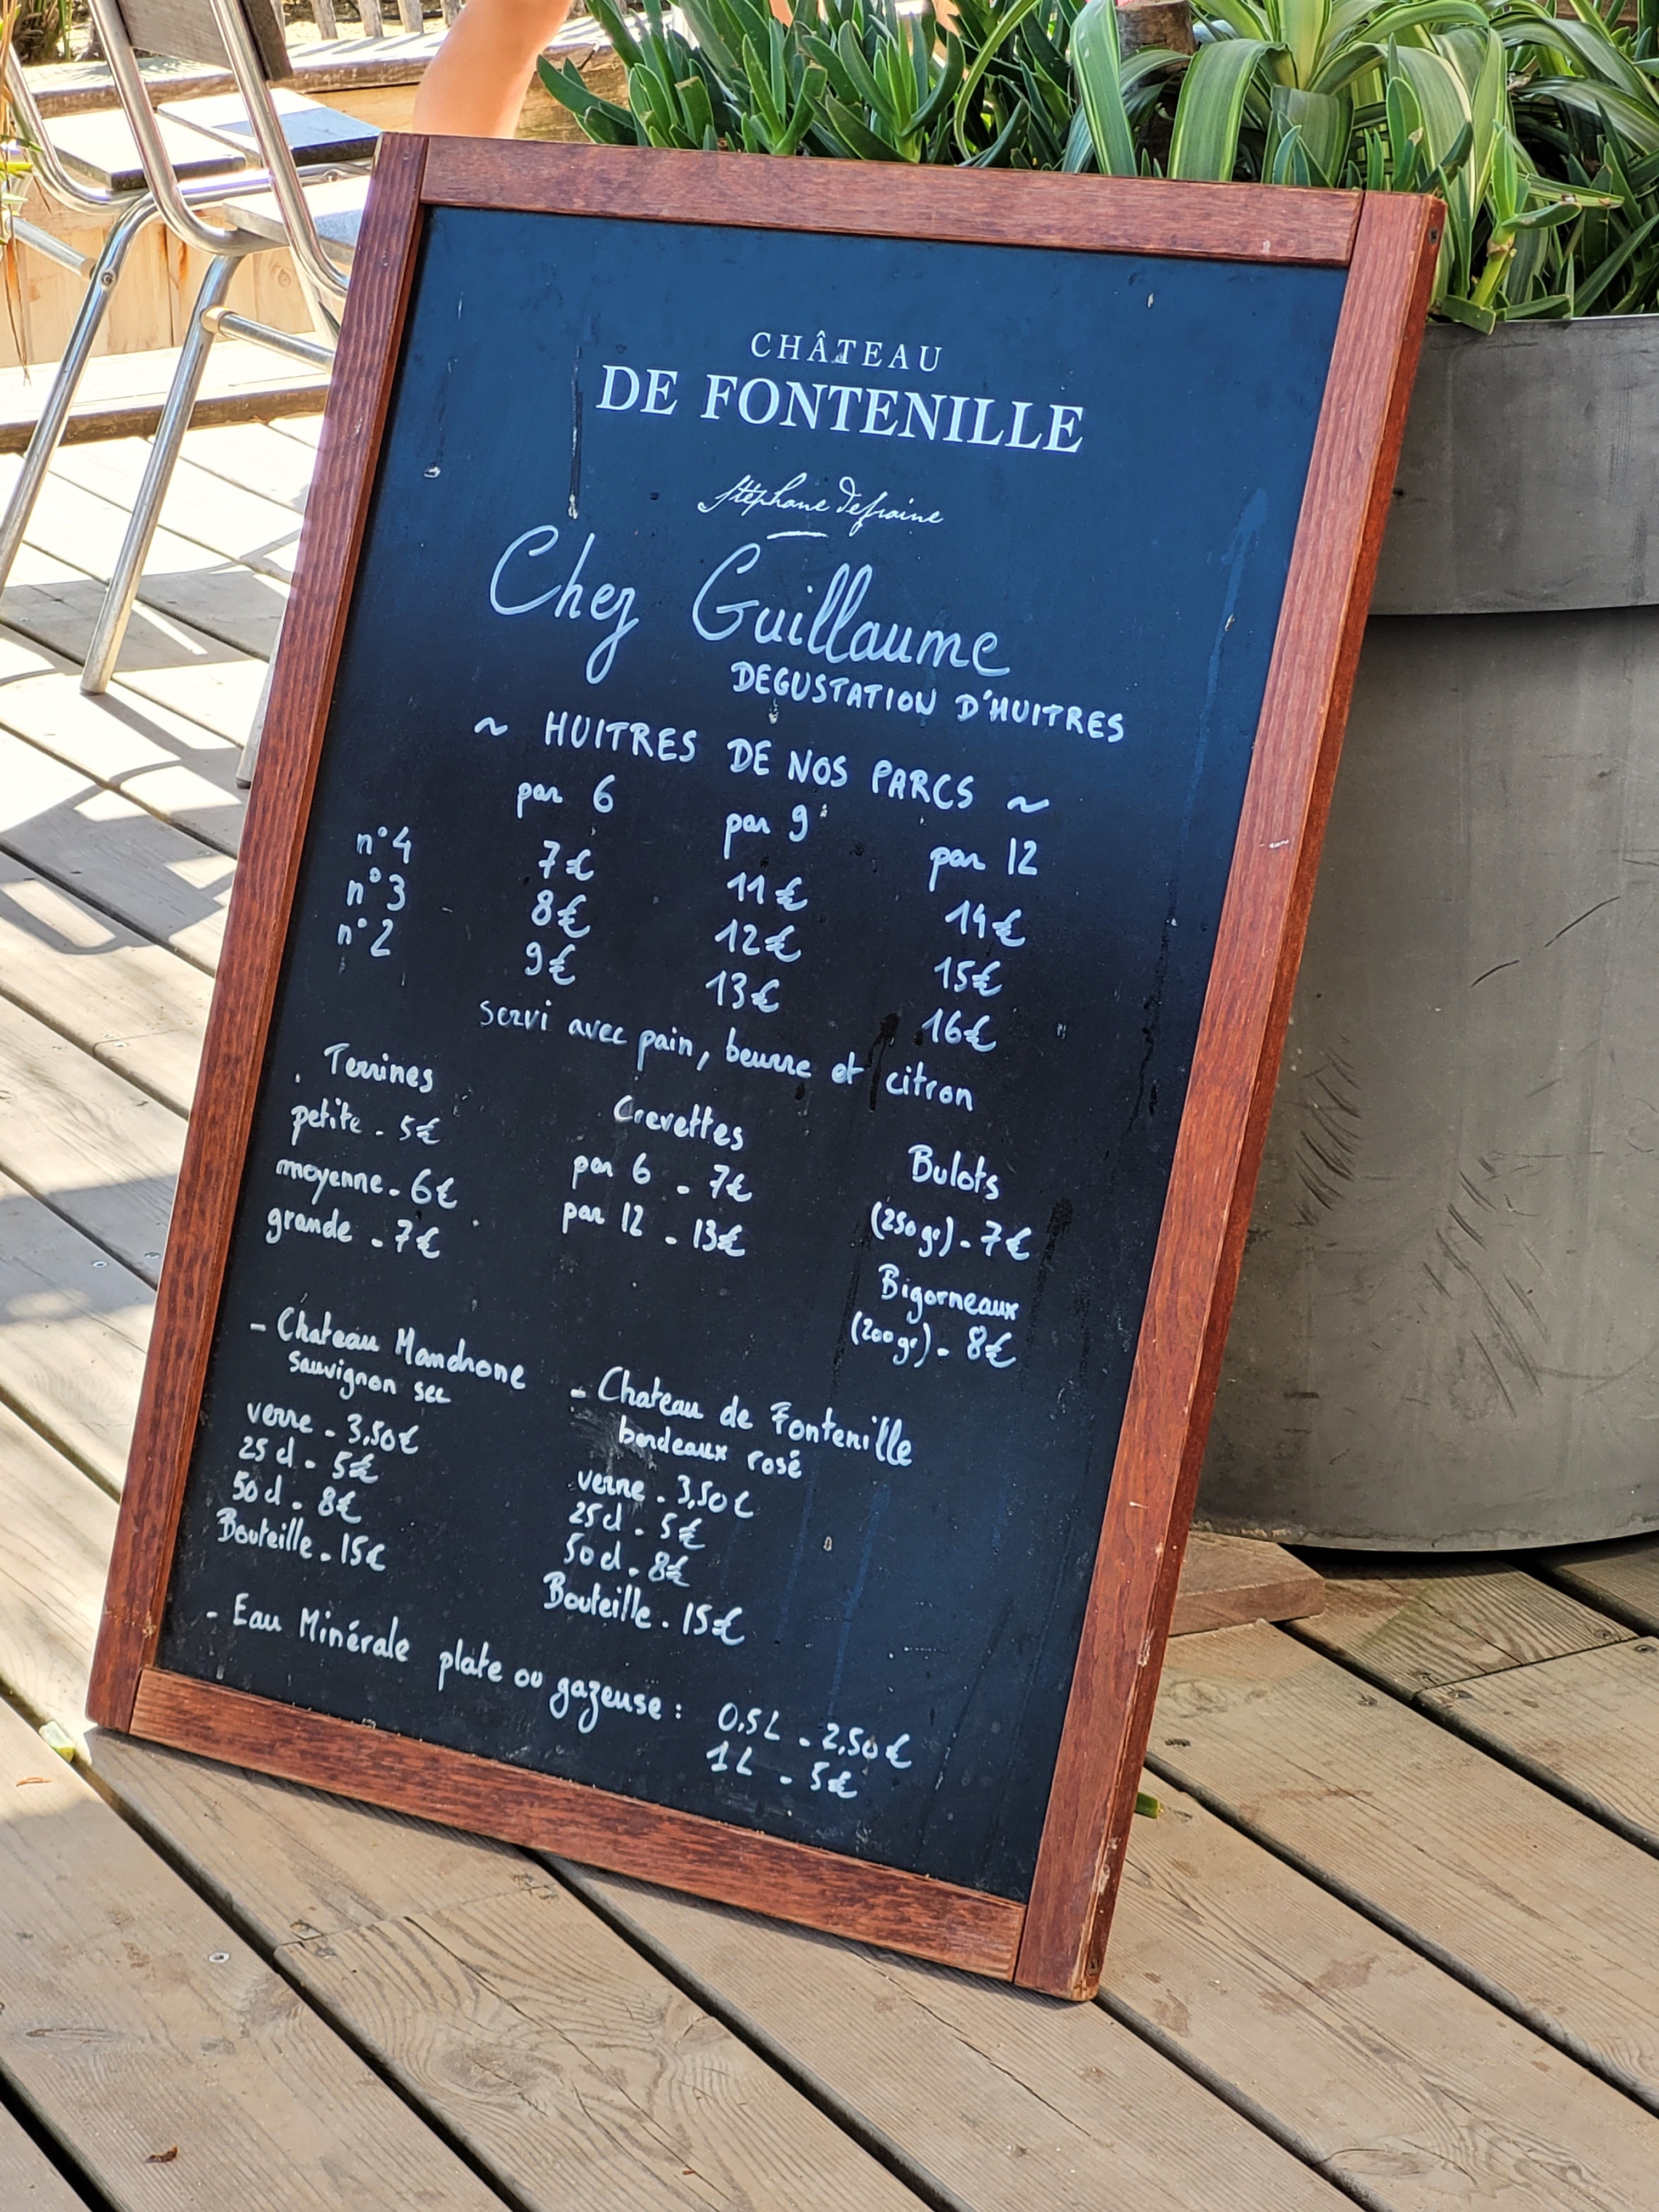 CHÂTEAU
DE FONTENILLE
Stéphane Defraine
Chez Guillaume
DEGUSTATION D'HUITRES
~ HUITRES DE NOS PARCS ~
par 6 par 9 par 12
n°4 7€ 11€ 14€
n°3 8€ 12€ 15€
n°2 9€ 13€ 16€
servi avec pain, beurre et citron
Terrines
petite - 5€
moyenne - 6€
grande - 7€
Crevettes
par 6 - 7€
par 12 - 13€
Bulots
(250gr) - 7€
Bigorneaux
(200gr) - 8€
- Chateau Mandrone
sauvignon sec
verre - 3,50€
25 cl - 5€
50 cl - 8€
Bouteille - 15€
- Chateau de Fontenille
bordeaux rosé
verre - 3,50€
25cl - 5€
50 cl - 8€
Bouteille - 15€
- Eau Minérale plate ou gazeuse : 0,5L - 2,50€
1L - 5€